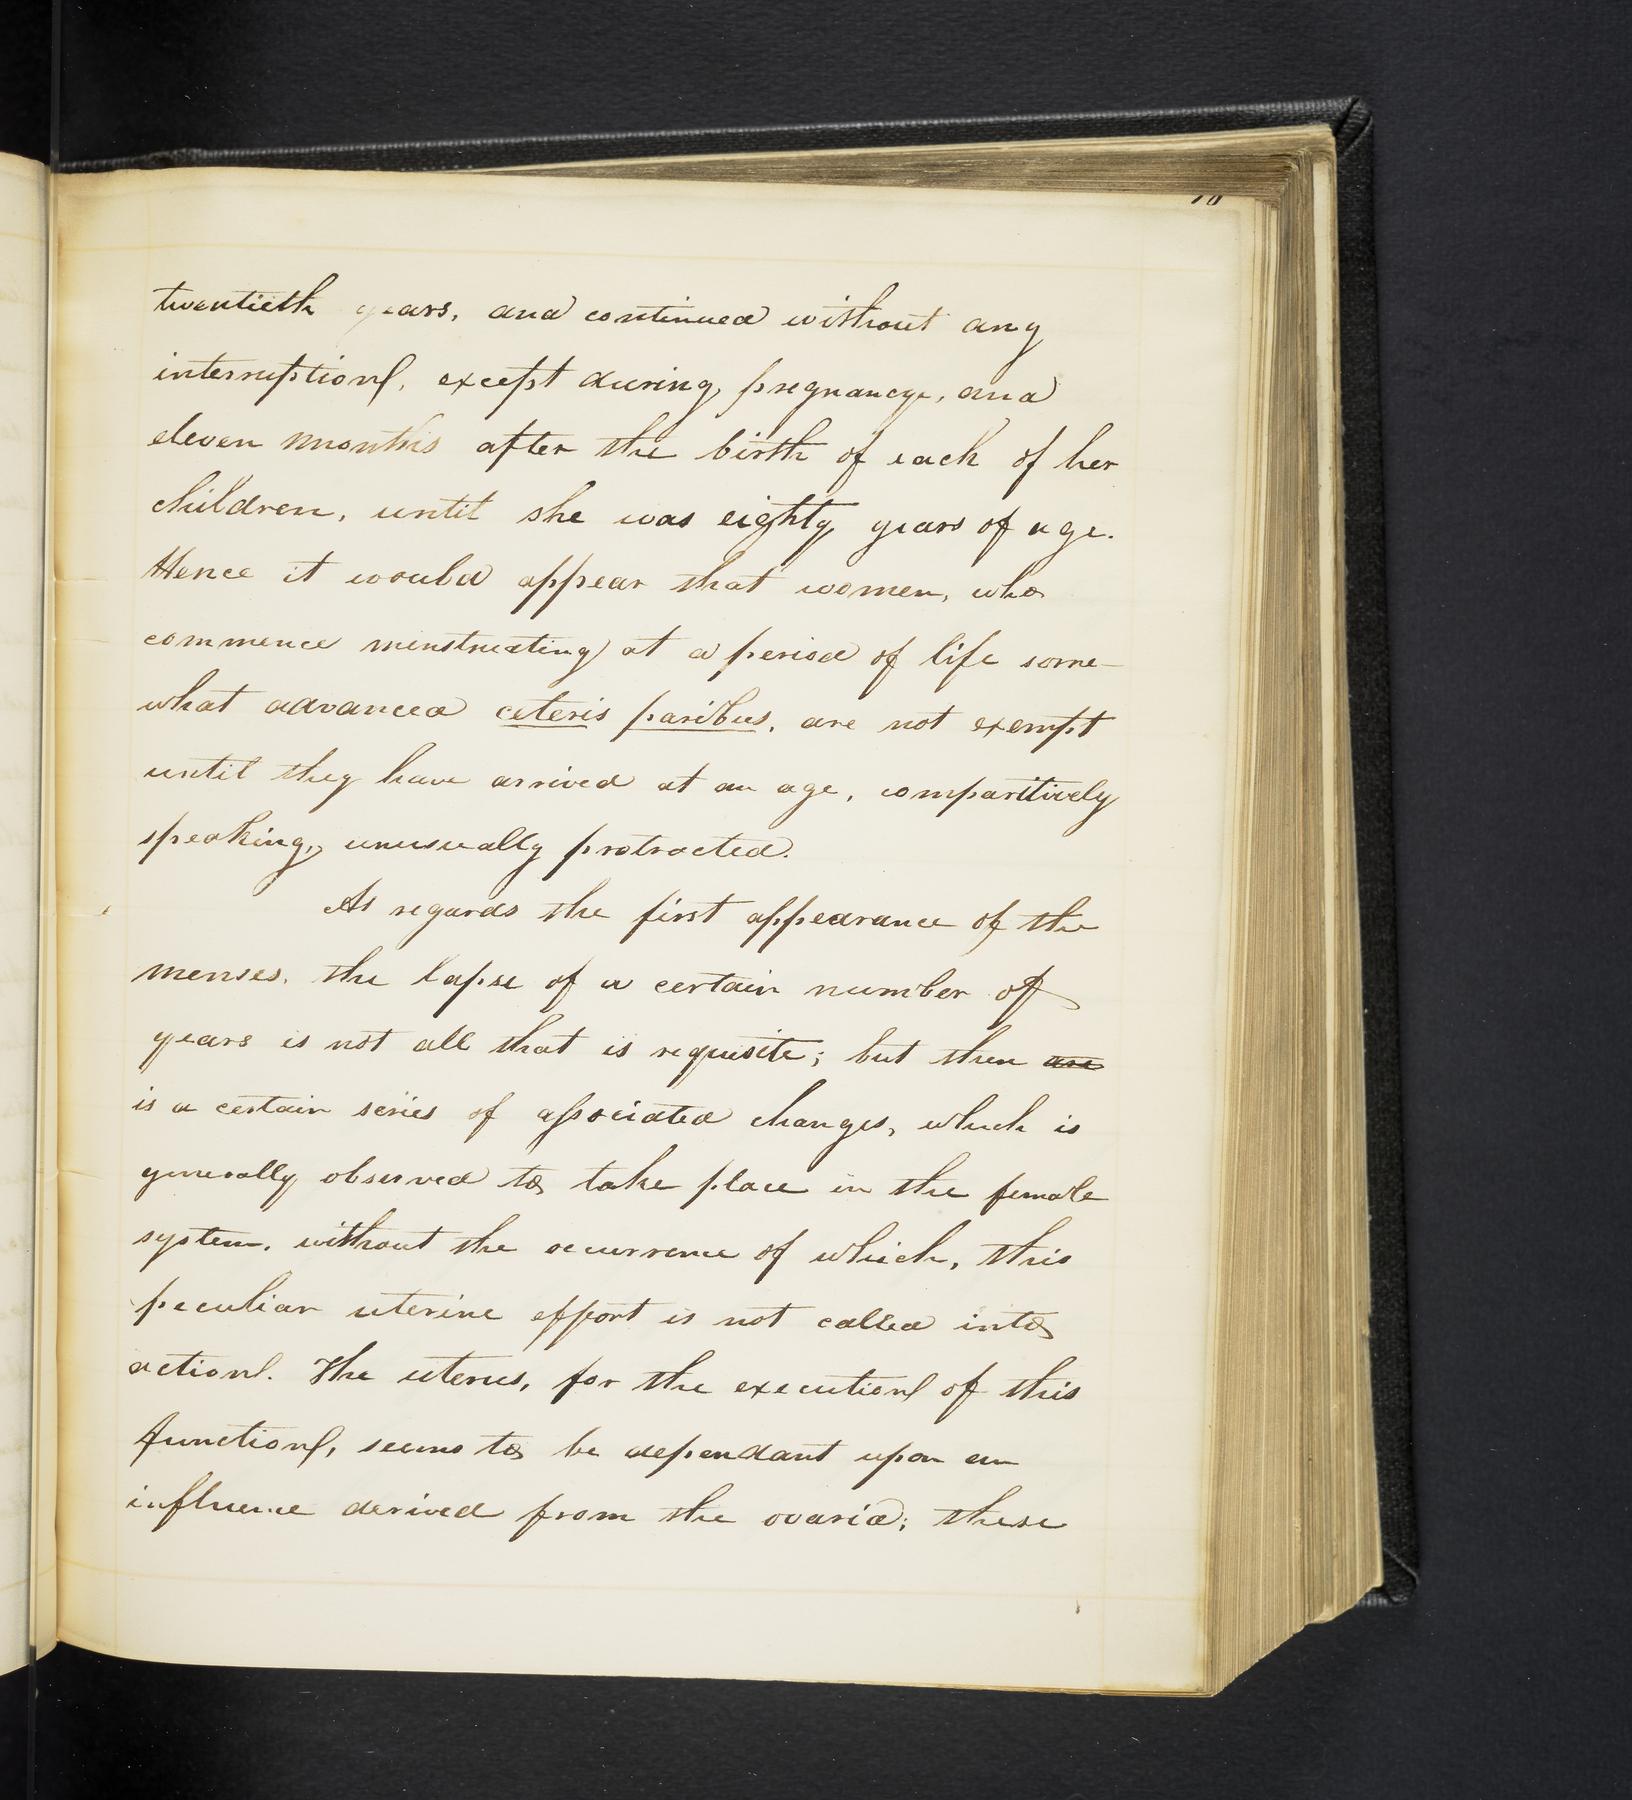 twentieth years, and continued without any
interruption, except during pregnancy, and
eleven months after the birth of each of her
children, until she was eighty years of age.
Hence it would appear that women, who
commence menstruating at a period of life some-
what advanced ceteris paribus, are not exempt
until they have arrived at an age, comparitively
speaking, unusually protracted.
As regards the first appearance of the
menses, the lapse of a certain number of
years is not all that is requisite; but there are
is a certain series of associated changes, which is
generally observed to take place in the female
system, without the occurrence of which, this
peculiar uterine effort is not called into
action. The uterus, for the execution of this
function, seems to be dependant upon an
influence derived from the ovaria; these